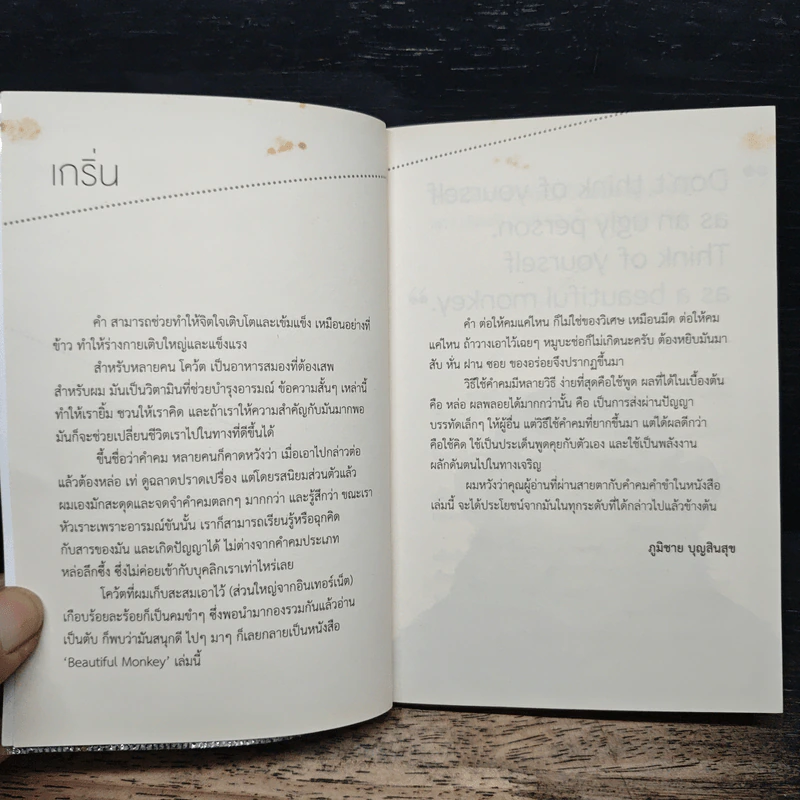 เกริ่น
คำ สามารถช่วยทำให้จิตใจเติบโตและเข้มแข็ง เหมือนอย่างที่
ข้าว ทำให้ร่างกายเติบใหญ่และแข็งแรง
สำหรับหลายคน โคว้ต เป็นอาหารสมองที่ต้องเสพ
สำหรับผม มันเป็นวิตามินที่ช่วยบำรุงอารมณ์ ข้อความสั้นๆ เหล่านี้
ทำให้เรายิ้ม ชวนให้เราคิด และถ้าเราให้ความสำคัญกับมันมากพอ
มันก็จะช่วยเปลี่ยนชีวิตเราไปในทางที่ดีขึ้นได้
ขึ้นชื่อว่าคำคม หลายคนก็คาดหวังว่า เมื่อเอาไปกล่าวต่อ
แล้วต้องหล่อ เท่ ดูฉลาดปราดเปรื่อง แต่โดยรสนิยมส่วนตัวแล้ว
ผมเองมักสะดุดและจดจำคำคมตลกๆ มากกว่า และรู้สึกว่า ขณะเรา
หัวเราะเพราะอารมณ์ขันนั้น เราก็สามารถเรียนรู้หรือฉุกคิด
กับสารของมัน และเกิดปัญญาได้ ไม่ต่างจากคำคมประเภท
หล่อลึกซึ้ง ซึ่งไม่ค่อยเข้ากับบุคลิกเราเท่าไหร่เลย
โคว้ตที่ผมเก็บสะสมเอาไว้ (ส่วนใหญ่จากอินเทอร์เน็ต)
เกือบร้อยละร้อยก็เป็นคมขำๆ ซึ่งพอนำมากองรวมกันแล้วอ่าน
เป็นตับ ก็พบว่ามันสนุกดี ไปๆ มาๆ ก็เลยกลายเป็นหนังสือ
‘Beautiful Monkey’ เล่มนี้
คำ ต่อให้คมแค่ไหน ก็ไม่ใช่ของวิเศษ เหมือนมีด ต่อให้คม
แค่ไหน ถ้าวางเอาไว้เฉยๆ หมูบะช่อก็ไม่เกิดนะครับ ต้องหยิบมันมา
สับ หั่น ฝาน ซอย ของอร่อยจึงปรากฏขึ้นมา
วิธีใช้คำคมมีหลายวิธี ง่ายที่สุดคือใช้พูด ผลที่ได้ในเบื้องต้น
คือ หล่อ ผลพลอยได้มากกว่านั้น คือ เป็นการส่งผ่านปัญญา
บรรทัดเล็กๆ ให้ผู้อื่น แต่วิธีใช้คำคมที่ยากขึ้นมา แต่ได้ผลดีกว่า
คือใช้คิด ใช้เป็นประเด็นพูดคุยกับตัวเอง และใช้เป็นพลังงาน
ผลักดันตนไปในทางเจริญ
ผมหวังว่าคุณผู้อ่านที่ผ่านสายตากับคำคมคำขำในหนังสือ
เล่มนี้ จะได้ประโยชน์จากมันในทุกระดับที่ได้กล่าวไปแล้วข้างต้น
ภูมิชาย บุญสินสุข
“Don't think of yourself
as an ugly person.
Think of yourself
as a beautiful monkey.”